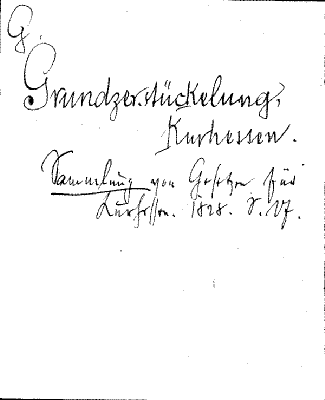 G.
Grundzerstückelung,
Kurhessen.
Sammlung von Gesetzen für
Kurhessen. 1828. S.